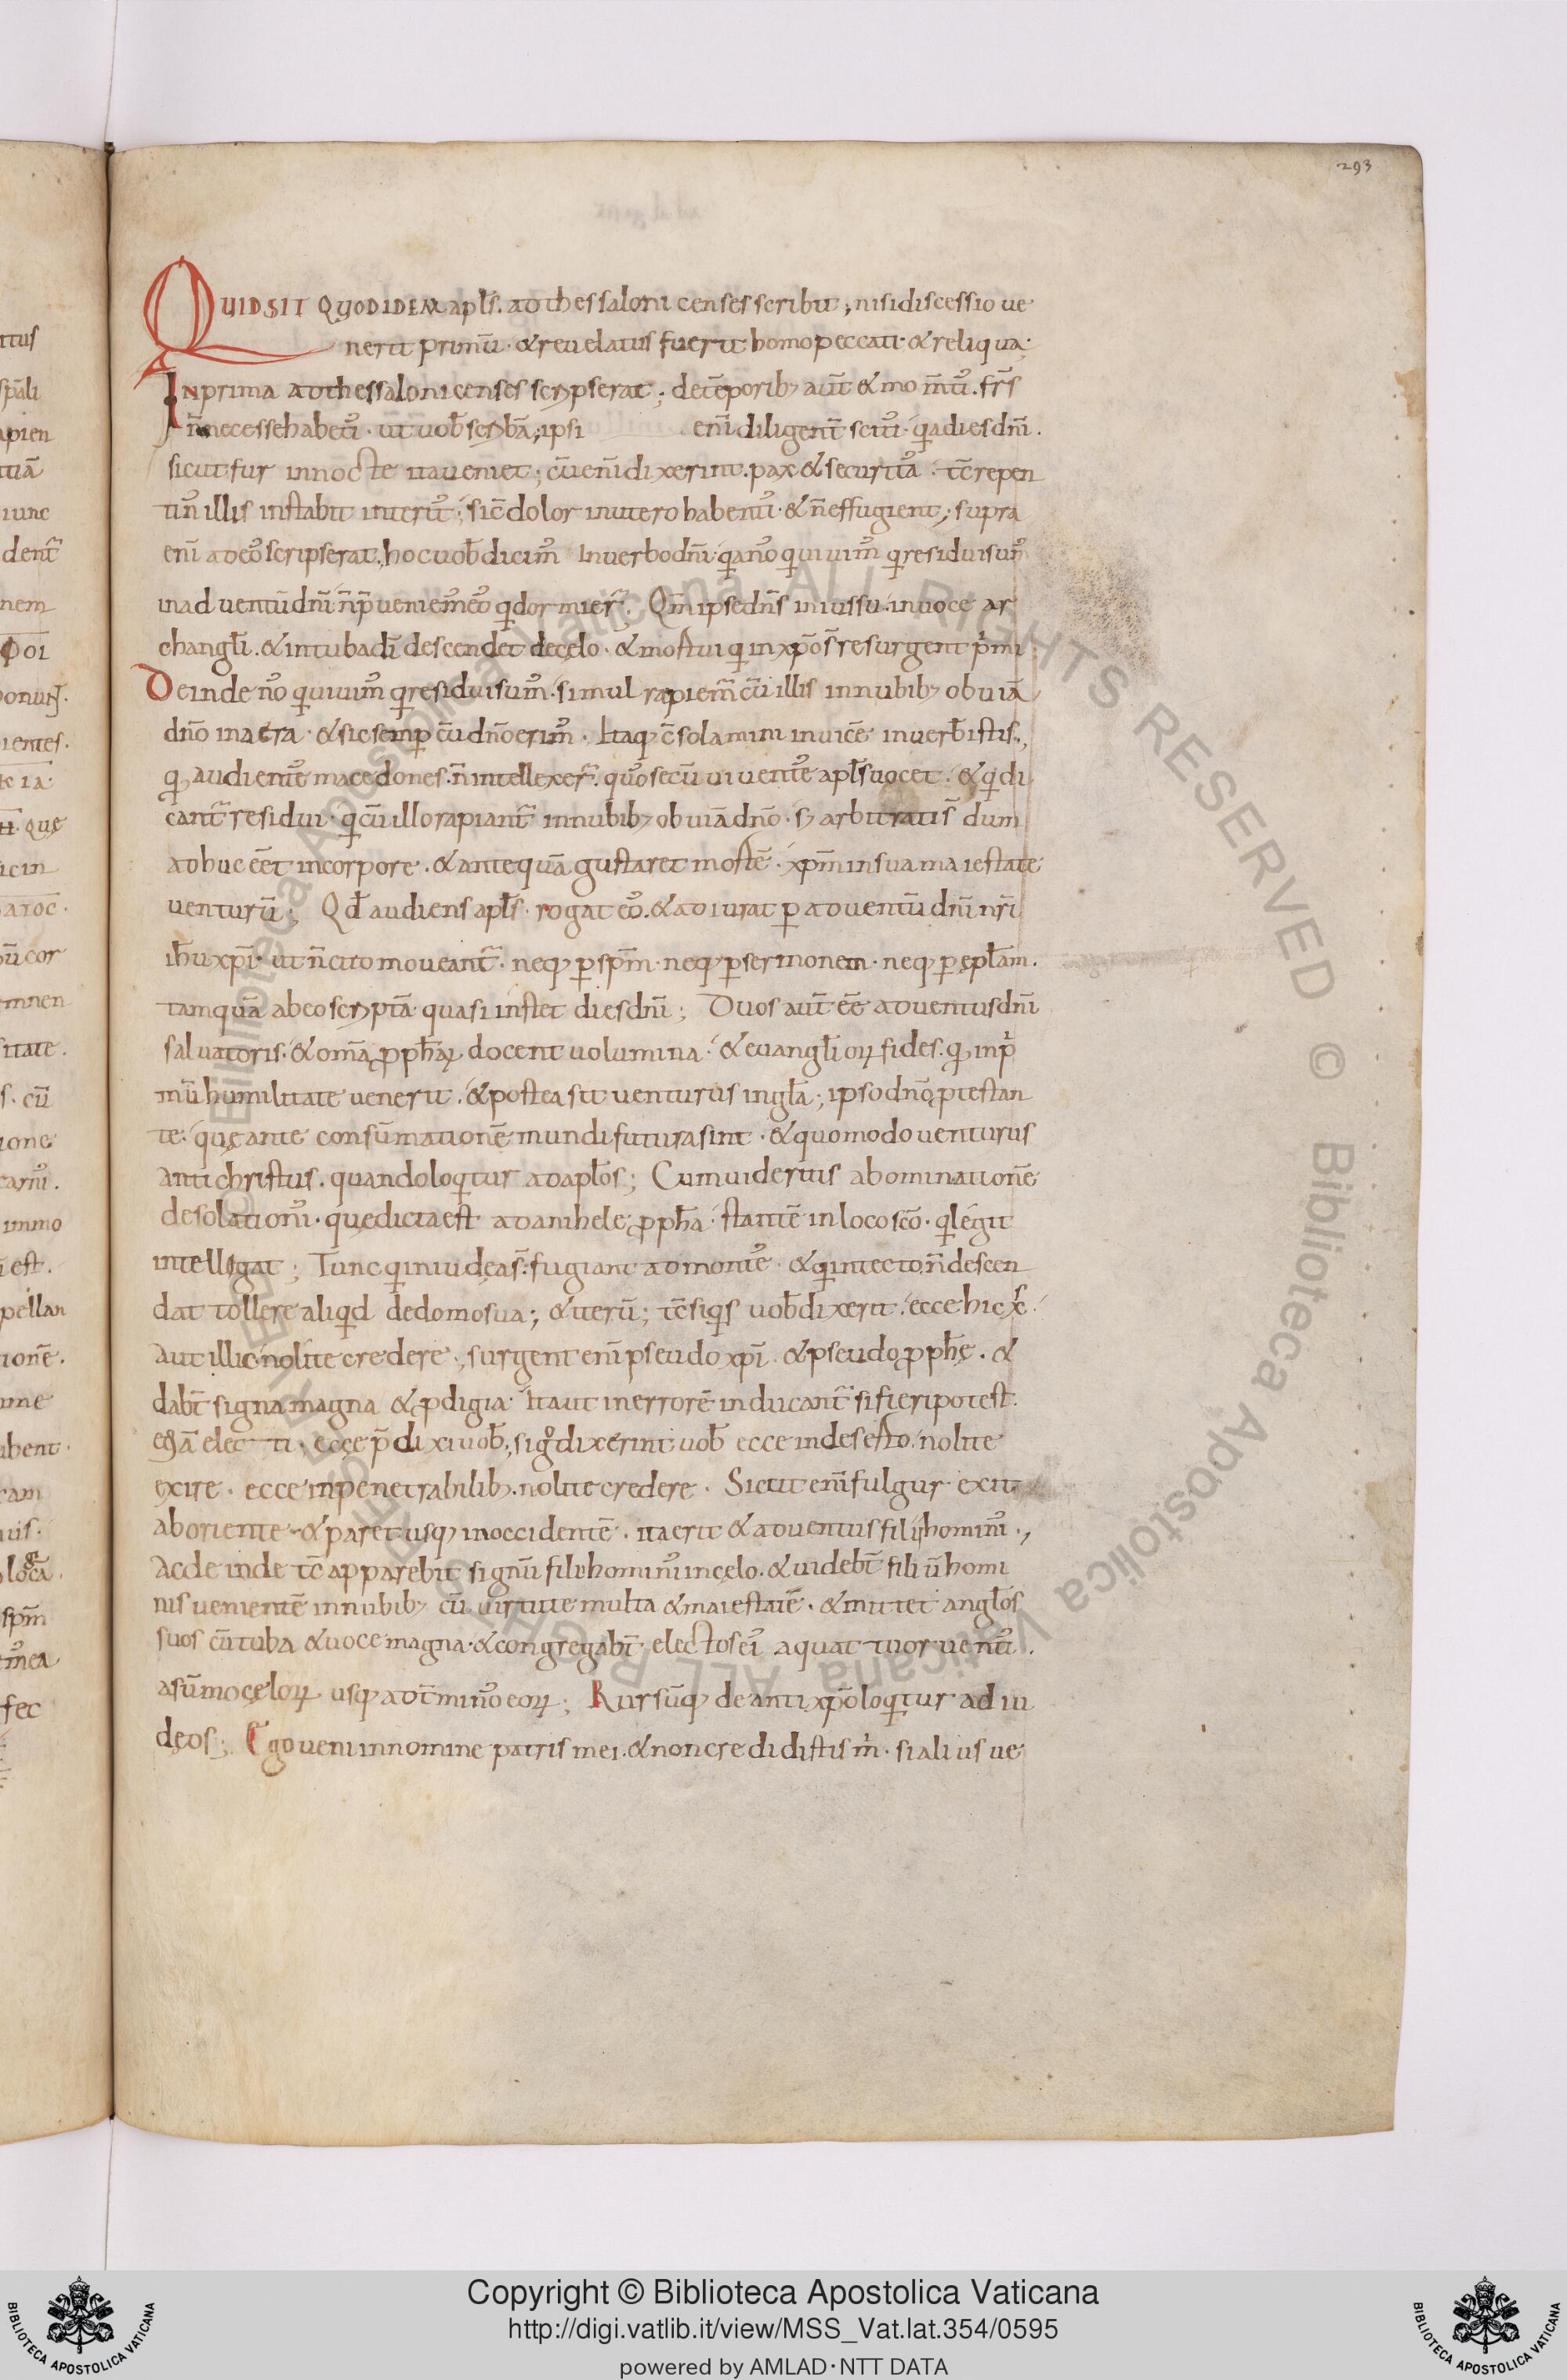 293
QUID SIT QUOD IDEM apl̅s. ad thessalonicenses scribit; nisi discessio ue
nerit primu̅. & reuelatus fuerit homo peccati. & reliqua.
IN prima ad thessalonicenses scripserat; de te̅porib; aut̅ & mom̅tꝰ. fr̅s
n̅ necesse habetꝰ. ut uob̅ scriba̅; ipsi eni̅ diligent̅ scitꝰ. qa dies dn̅i.
sicut fur in nocte ita ueniet; cu̅ eni̅ dixerint. pax & securitꝰa. tc̅ repen
tinꝰ illis instabit interitꝰ; sic̅ dolor in utero habentꝰ. & n̅ effugient; supra
eni̅ ad eoꝰ scripserat, hoc uob̅ dicimꝰ in uerbo dn̅i. qa noꝰ qui uiuimꝰ q residui sumꝰ
in aduentu̅ dn̅i n̅ p̅ueniemꝰ eoꝰ q dormier̅. Qm̅ ipse dn̅s in iussu. in uoce ar
changl̅i. & in tuba di̅ descendet de cęlo. & mortui q in xp̅o s̅ resurgent pͥmi.
Deinde noꝰ qui uiuimꝰ q residui sumꝰ. simul rapiem̅ cu̅ illis in nubib; obuia̅
dn̅o in aera. & sic semp̅ cu̅ dn̅o erimꝰ. Itaq; c̅solamini inuice̅ in uerb̅ istis,
q audientꝰe macedones. n̅ intellexer̅. quoꝰ secu̅ uiuentꝰe apl̅s uocet. & q di
cant̅ residui. q cu̅ illo rapiant̅ in nubib; obuia̅ dn̅o. s; arbitrati s̅ dum
adhuc ee̅t in corpore. & antequa̅ gustaret morte̅. xpm̅ in sua maiestate
uenturu̅; Qd̅ audiens apl̅s. rogat eoꝰ. & adiurat p̱ aduentu̅ dn̅i nr̅i
ih̅u xp̅i. ut n̅ cito moueant̅. neq; p̱ spm̅. neq; p̱ sermonem. neq; p̱ ępl̅am.
tamqua̅ ab eo scripta̅ quasi instet dies dn̅i; Duos aut̅ ee̅ aduentus dn̅i
saluatoris. & om̅a ꝓph̅aꝝ docent uolumina. & euangl̅ioꝝ fides. q inpͥ
mu̅ humilitate uenerit. & postea sit uenturus in gl̅a; ipso dn̅o ꝓtestan
te. quę ante consu̅matione̅ mundi futura sint. & quomodo uenturus
antichristus. quando loqtur ad apl̅os; Cum uideritis abominatione̅
desolationꝰi. quę dicta est a danihele ꝓph̅a. stante̅ in loco sc̅o. q legit
intellegat; Tunc q in iudęa s̅. fugiant ad montꝰe. & q in tecto. n̅ descen
dat tollere aliqd de domo sua; & iteru̅; tc̅ siqs uob̅ dixerit. ecce hic xr̅.
aut illic. nolite credere; surgent eni̅ pseudo xp̅i. & pseudo ꝓph̅ę. &
dabt̅ signa magna & ꝓdigia. Ita ut in errore̅ inducant̅ si fieri potest.
& a̅ electi. ecce p̅dixi uob̅, si g̊ dixerint uob̅ ecce in deserto. nolite
exire. ecce in penetralilib;. nolite credere. Sicut eni̅ fulgur exit
ab oriente & paret usq; in occidente̅. ita erit & aduentus filii hominꝰi;
Ac deinde tc̅ apparebit signu̅ filii hominꝰi in cęlo. & uidebt̅ filiu̅ homi
nis uenientē in nubib; cu̅ uirtute multa & maiestate̅. & mittet angl̅os
suos cu̅ tuba & uoce magna. & congregabt̅ electos eꝰi a quattuor uentꝰi.
a su̅mo cęloꝝ usq; ad t̅minoꝰ eoꝝ; Rursu̅q; de antixp̅o loqtur ad iu
dęos; Ego ueni in nomine patris mei. & non credidistis mͥ. si alius ue
Copyright © Biblioteca Apostolica Vaticana
http://digi.vatlib.it/view/MSS_Vat.lat.354/0595
powered by AMLAD·NTT DATA
BIBLIOTECA APOSTOLICA VATICANA
BIBLIOTECA APOSTOLICA VATICANA